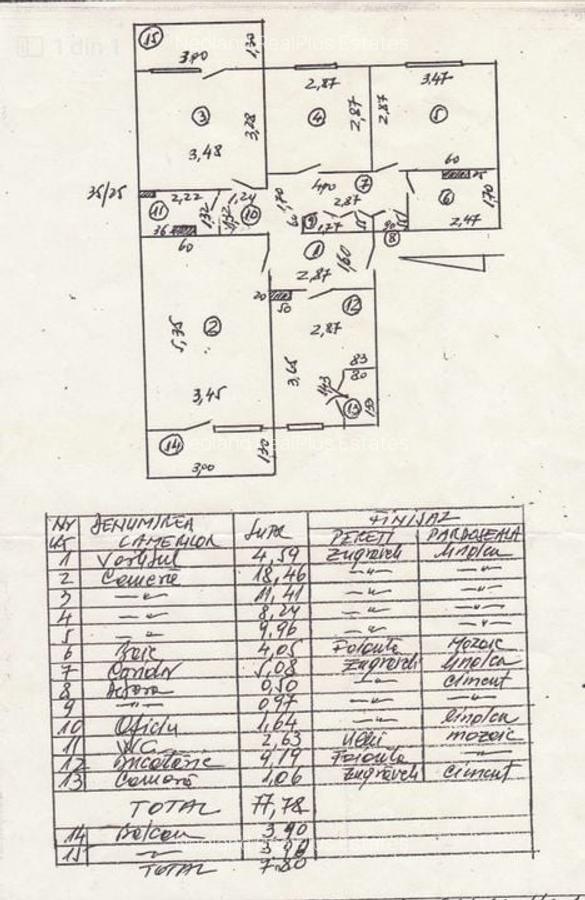 1 din 1
Neoland RealPlus Estates
15
3,90
1,30
2,87
3,47
3
3,28
4
2,87
2,87
5
3,48
60
7
25
35/25
2,22
1,24
1,70
4,90
2,87
6
1,70
11
1,32
1,32
10
60
9
1,77
90
2,47
36
8
60
1
1,60
2,87
20
50
12
2
2,87
5,35
3,65
83
80
3,45
1,43
13
1,33
14
Neoland RealPlus Estates
1,30
3,00
Nr DENUMIREA Supr FINISAJ
CAMERILOR PERETI PARDOSEALA
1 Vestibul 4,59 Zugraveli linoleu
2 Camera 18,46 —"— —"—
3 —"— 11,41 —"— —"—
4 —"— 8,24 —"— —"—
5 —"— 9,96 —"— —"—
6 Baie 4,05 Faianta Mozaic
7 Coridor 5,08 Zugraveli linoleu
8 0,50 —"— Ciment
9 —"— 0,97 —"— —"—
10 Oficiu 1,64 —"— linoleu
11 WC 2,63 Ulei mozaic
12 Bucatarie 9,19 Faianta —"—
13 Camara 1,06 Zugraveli Ciment
TOTAL 77,78
14 Balcon 3 90
15 —"— 3 90
TOTAL 7.80